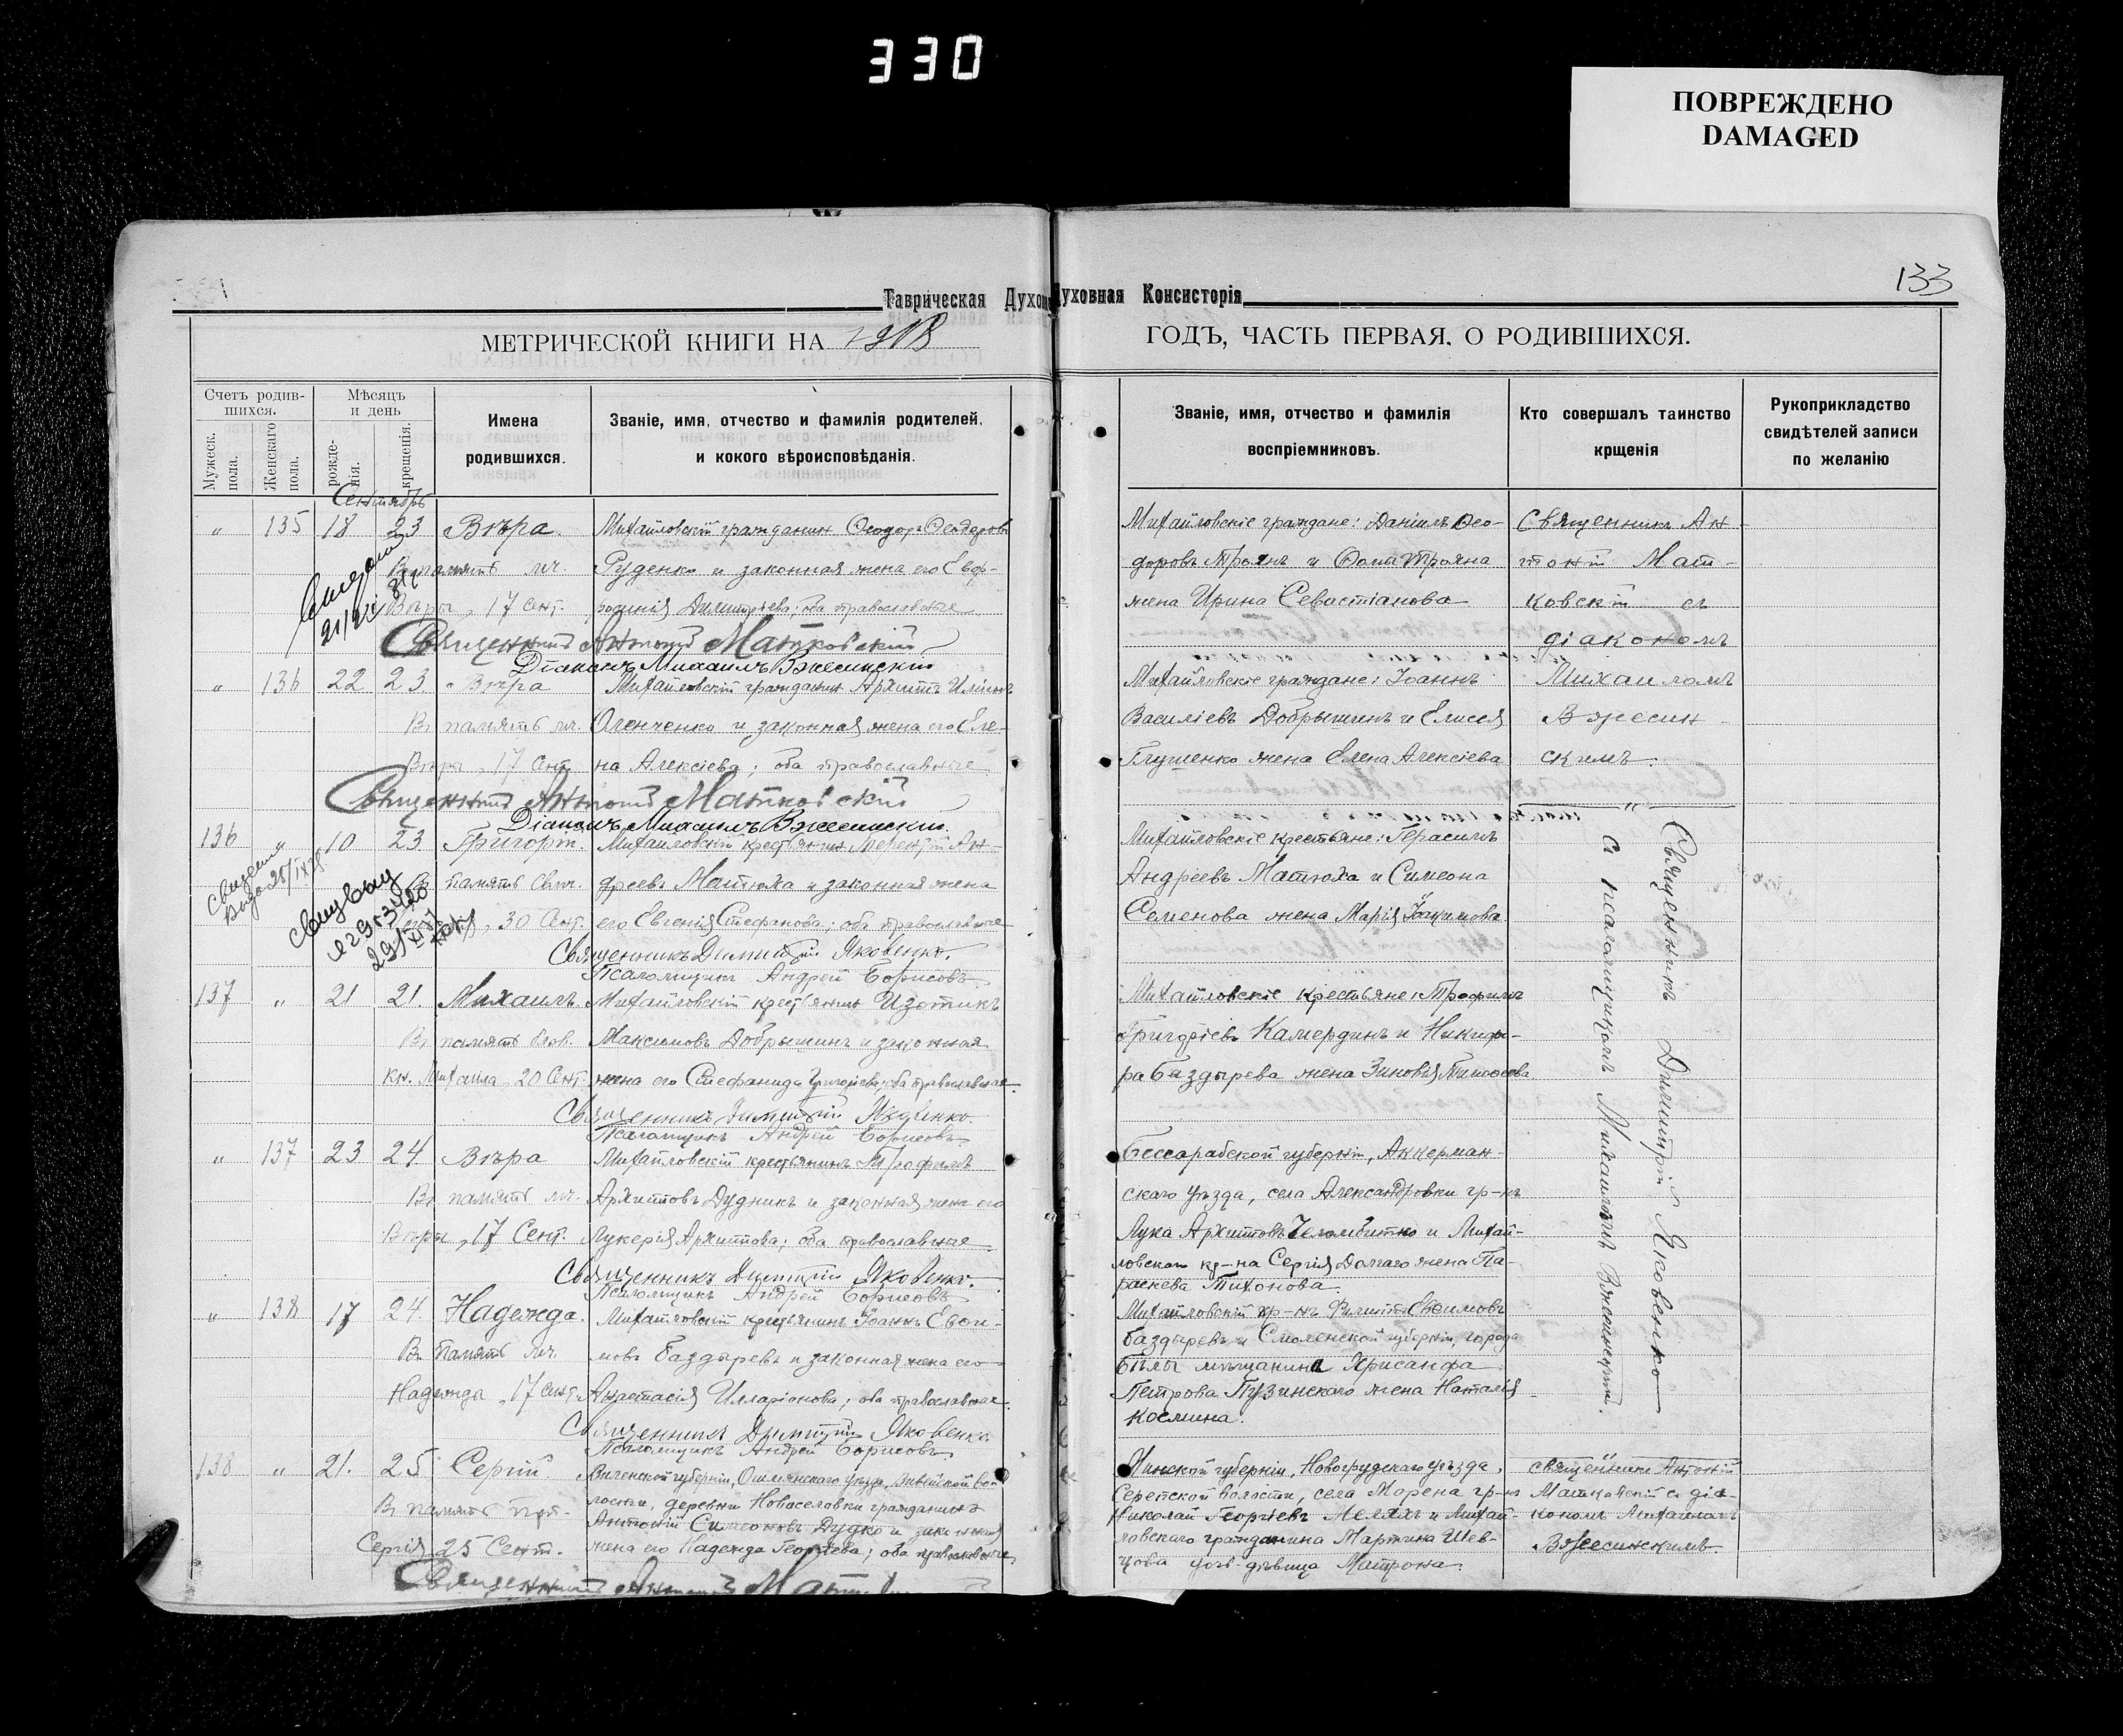 330
ПОВРЕЖДЕНО
DAMAGED
133
Таврическая Духов
уховная Консисторія
МЕТРИЧЕСКОЙ КНИГИ НА 1918
ГОДЪ, ЧАСТЬ ПЕРВАЯ, О РОДИВШИХСЯ.
Счетъ родив-
шихся.
Мужеск.
пола.
Женскаго
пола.
Мѣсяцъ
и день
рожде-
нія.
крещенія.
Имена
родившихся.
Званіе, имя, отчество и фамилія родителей,
и кокого вѣроисповѣданія.
Званіе, имя, отчество и фамилія
воспріемниковъ.
Кто совершалъ таинство
крщенія
Рукоприкладство
свидѣтелей записи
по желанію
Сентябрь
„ 135 18 23 Вѣра. Михайловскій гражданинъ Ѳеодоръ Ѳеодоровъ
Въ память мч. Руденко и законная жена его Евф-
Вѣры, 17 Сент. росинія Димитріева; оба православные
Священникъ Антоній Матковскій
Діаконъ Михаилъ Вжесинскій
Михайловскіе граждане: Даніилъ Ѳео-
доровъ Троянъ и Ѳомы Трояна
жена Ирина Севастіанова
Священникъ Ан-
тоній Мат-
ковскій съ
діакономъ
Михаиломъ
Вжесин-
скимъ.
„ 136 22 23 Вѣра Михайловскій гражданинъ Архиппъ Иліинъ
Въ память мч. Оленченко и законная жена его Еле-
Вѣры, 17 Сент. на Алексіева; оба православные
Священникъ Антоній Матковскій
Діаконъ Михаилъ Вжесинскій.
Михайловскіе граждане: Іоаннъ
Василіевъ Добрышинъ и Елисея
Глущенко жена Елена Алексіева
136 „ 10 23 Григорій. Михайловскій крестьянинъ Терентій Ан-
Въ память свмч. дреевъ Матюха и законная жена
30 Сент. его Евгенія Стефанова; оба православные
Священникъ Димитрій Яковенко.
Псаломщикъ Андрей Борисовъ
Михайловскіе крестьяне: Герасимъ
Андреевъ Матюха и Симеона
Семенова жена Марія Іоакимова
Священникъ Димитрій Яковенко
съ псаломщикомъ Михаиломъ Вжесинскимъ.
137 „ 21 21. Михаилъ. Михайловскій крестьянинъ Изотикъ
Въ память блов. Максимовъ Добрышинъ и законная
кн. Михаила 20 Сент. жена его Стефанида Григоріева; оба православные
Священникъ Димитрій Яковенко.
Псаломщикъ Андрей Борисовъ
Михайловскіе крестьяне: Трофимъ
Григоріевъ Камердинъ и Никифо-
ра Баздырева жена Зиновія Тимоѳеева
„ 137 23 24 Вѣра Михайловскій крестьянинъ Трофимъ
Въ память мч. Архипповъ Дудникъ и законная жена его
Вѣры, 17 Сент. Лукерія Архиппова; оба православные
Священникъ Димитрій Яковенко.
Псаломщикъ Андрей Борисовъ
Бессарабской губерніи, Аккерман-
скаго уѣзда, села Александровки гр-нъ
Лука Архипповъ Челомбитко и Михай-
ловскаго кр-на Сергія Долгаго жена Па-
раскева Тихонова.
„ 138 17 24. Надежда. Михайловскій крестьянинъ Іоаннъ Евѳи-
Въ память мч. мовъ Баздыревъ и законная жена его
Надежды, 17 сент. Анастасія Илларіонова; оба православные.
Священникъ Димитрій Яковенко
Псаломщикъ Андрей Борисовъ.
Михайловскій кр-нъ Филиппъ Евѳимовъ
Баздыревъ и Смоленской губерніи, города
Бѣлы мѣщанина Хрисанфа
Петрова Пузинскаго жена Наталія
Космина.
138 „ 21. 25 Сергій. Виленской губерніи, Ошмянскаго уѣзда, во-
Въ память прп. лости, деревни Новоселовки гражданинъ
Сергія 25 Сент. Антоній Симеоновъ Дудко и законная
жена его Надежда Георгіева; оба православные
Священникъ Антоній
Минской губерніи, Новогрудскаго уѣзда,
волости, села Морена гр-нъ
Николай Георгіевъ Меляхъ и Михай-
ловскаго гражданина Мартина Шев-
цова дочь дѣвица Матрона.
Священникъ Антоній
Матковскій съ діа-
кономъ Михаиломъ
Вжесинскимъ.